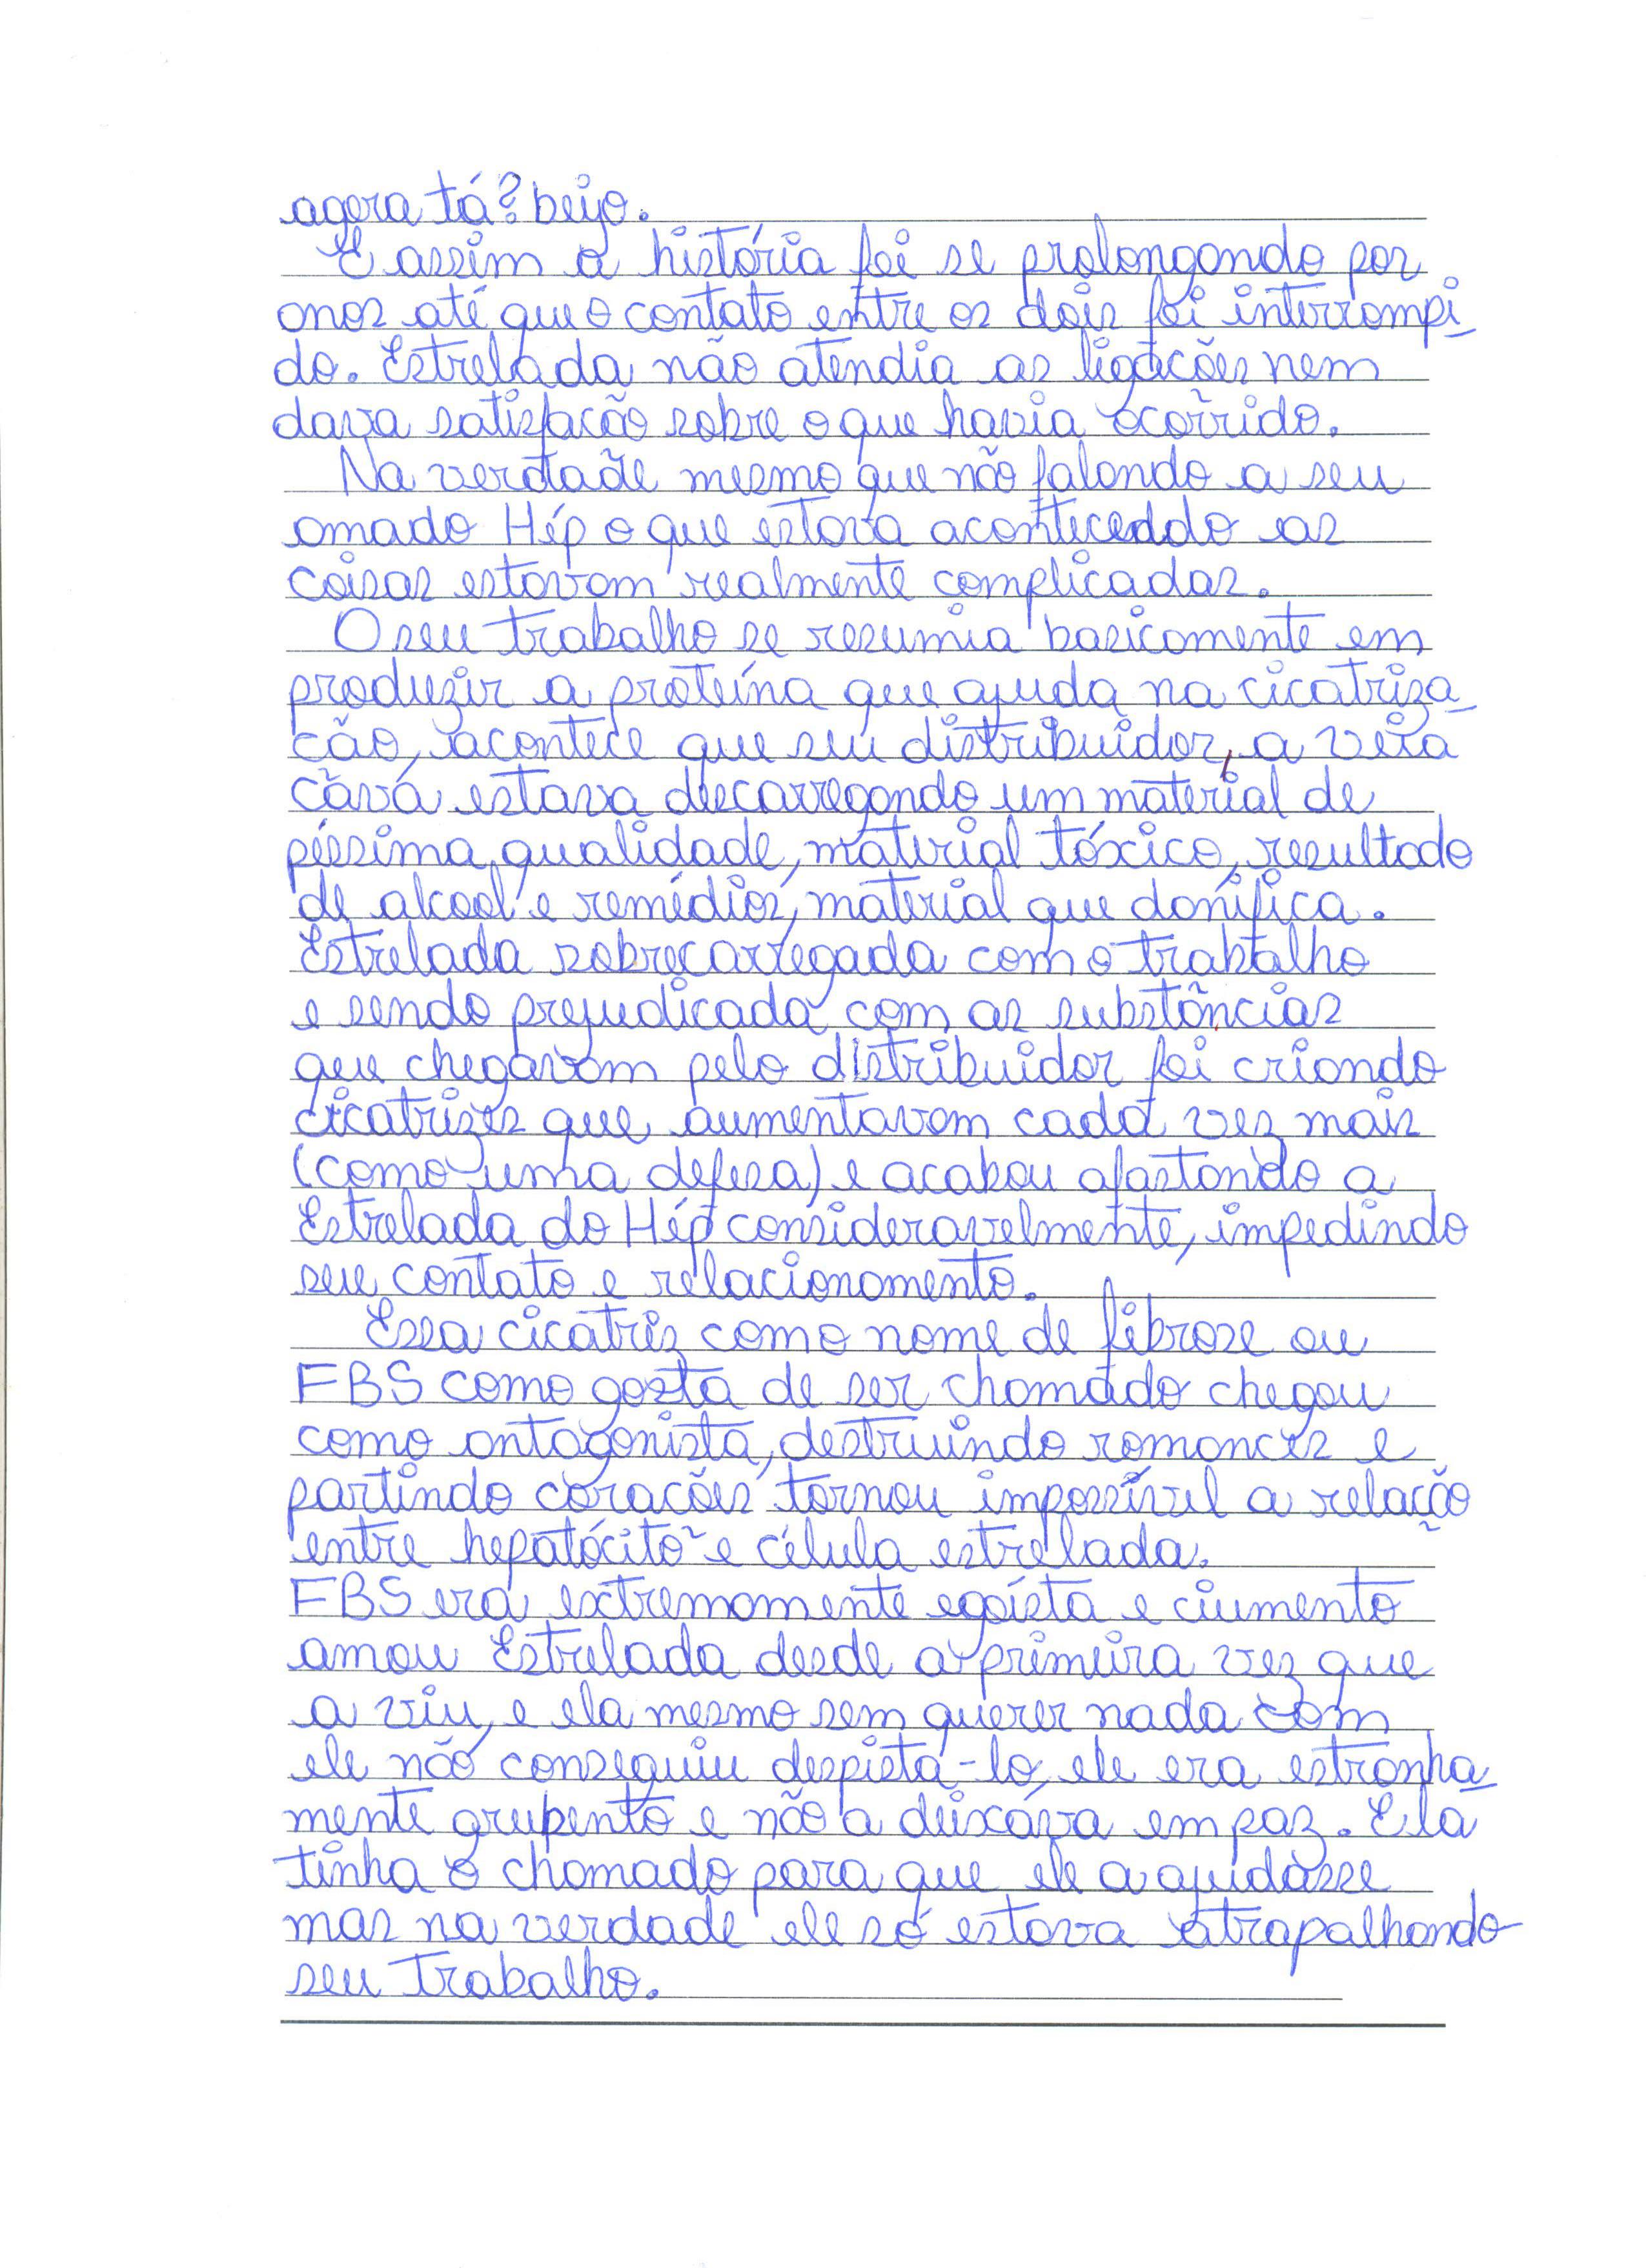 agora tá? beijo.
E assim a história foi se prolongando por
anos até que o contato entre os dois foi interrompi_
do. Estrelada não atendia as ligações nem
dava satisfação sobre o que havia ocorrido.
Na verdade mesmo que não falando a seu
amado Hép o que estava acontecendo as
coisas estavam realmente complicadas.
O seu trabalho se resumia basicamente em
produzir a proteína que ajuda na cicatriza_
ção, acontece que seu distribuidor, a veia
cava estava descarregando um material de
péssima qualidade, material tóxico, resultado
de alcool e remédios, material que danifica.
Estrelada sobrecarregada com o trabalho
e sendo prejudicada com as substâncias
que chegavam pelo distribuidor foi criando
cicatrizes que aumentavam cada vez mais
(como uma defesa) e acabou afastando a
Estrelada do Hép consideravelmente, impedindo
seu contato e relacionamento.
Essa cicatriz com o nome de fibrose ou
FBS como gosta de ser chamado chegou
como antagonista, destruindo romances e
partindo corações tornou impossível a relação
entre hepatócito e célula estrelada.
FBS era extremamente egoísta e ciumento
amou Estrelada desde a primeira vez que
a viu, e ela mesmo sem querer nada com
ele não conseguiu despistá-lo, ele era estranha_
mente grupento e não a deixava em paz. Ela
tinha o chamado para que ele a ajudasse
mas na verdade ele só estava atrapalhando
seu trabalho.